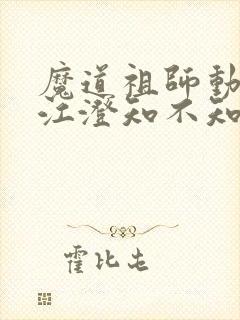 魔道祖師動
江澄知不知
霍比屯